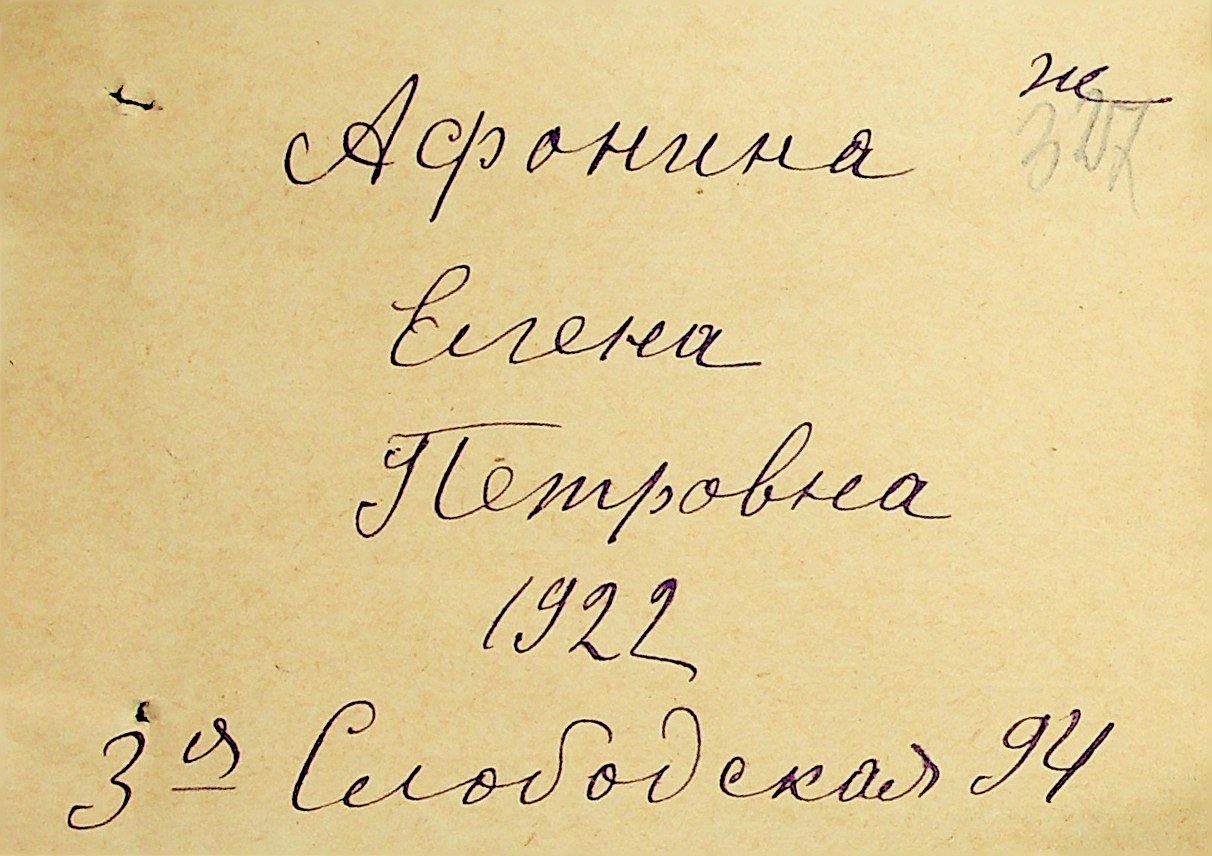 ж
Афонина
Елена
Петровна
1922
3я Слободская 94